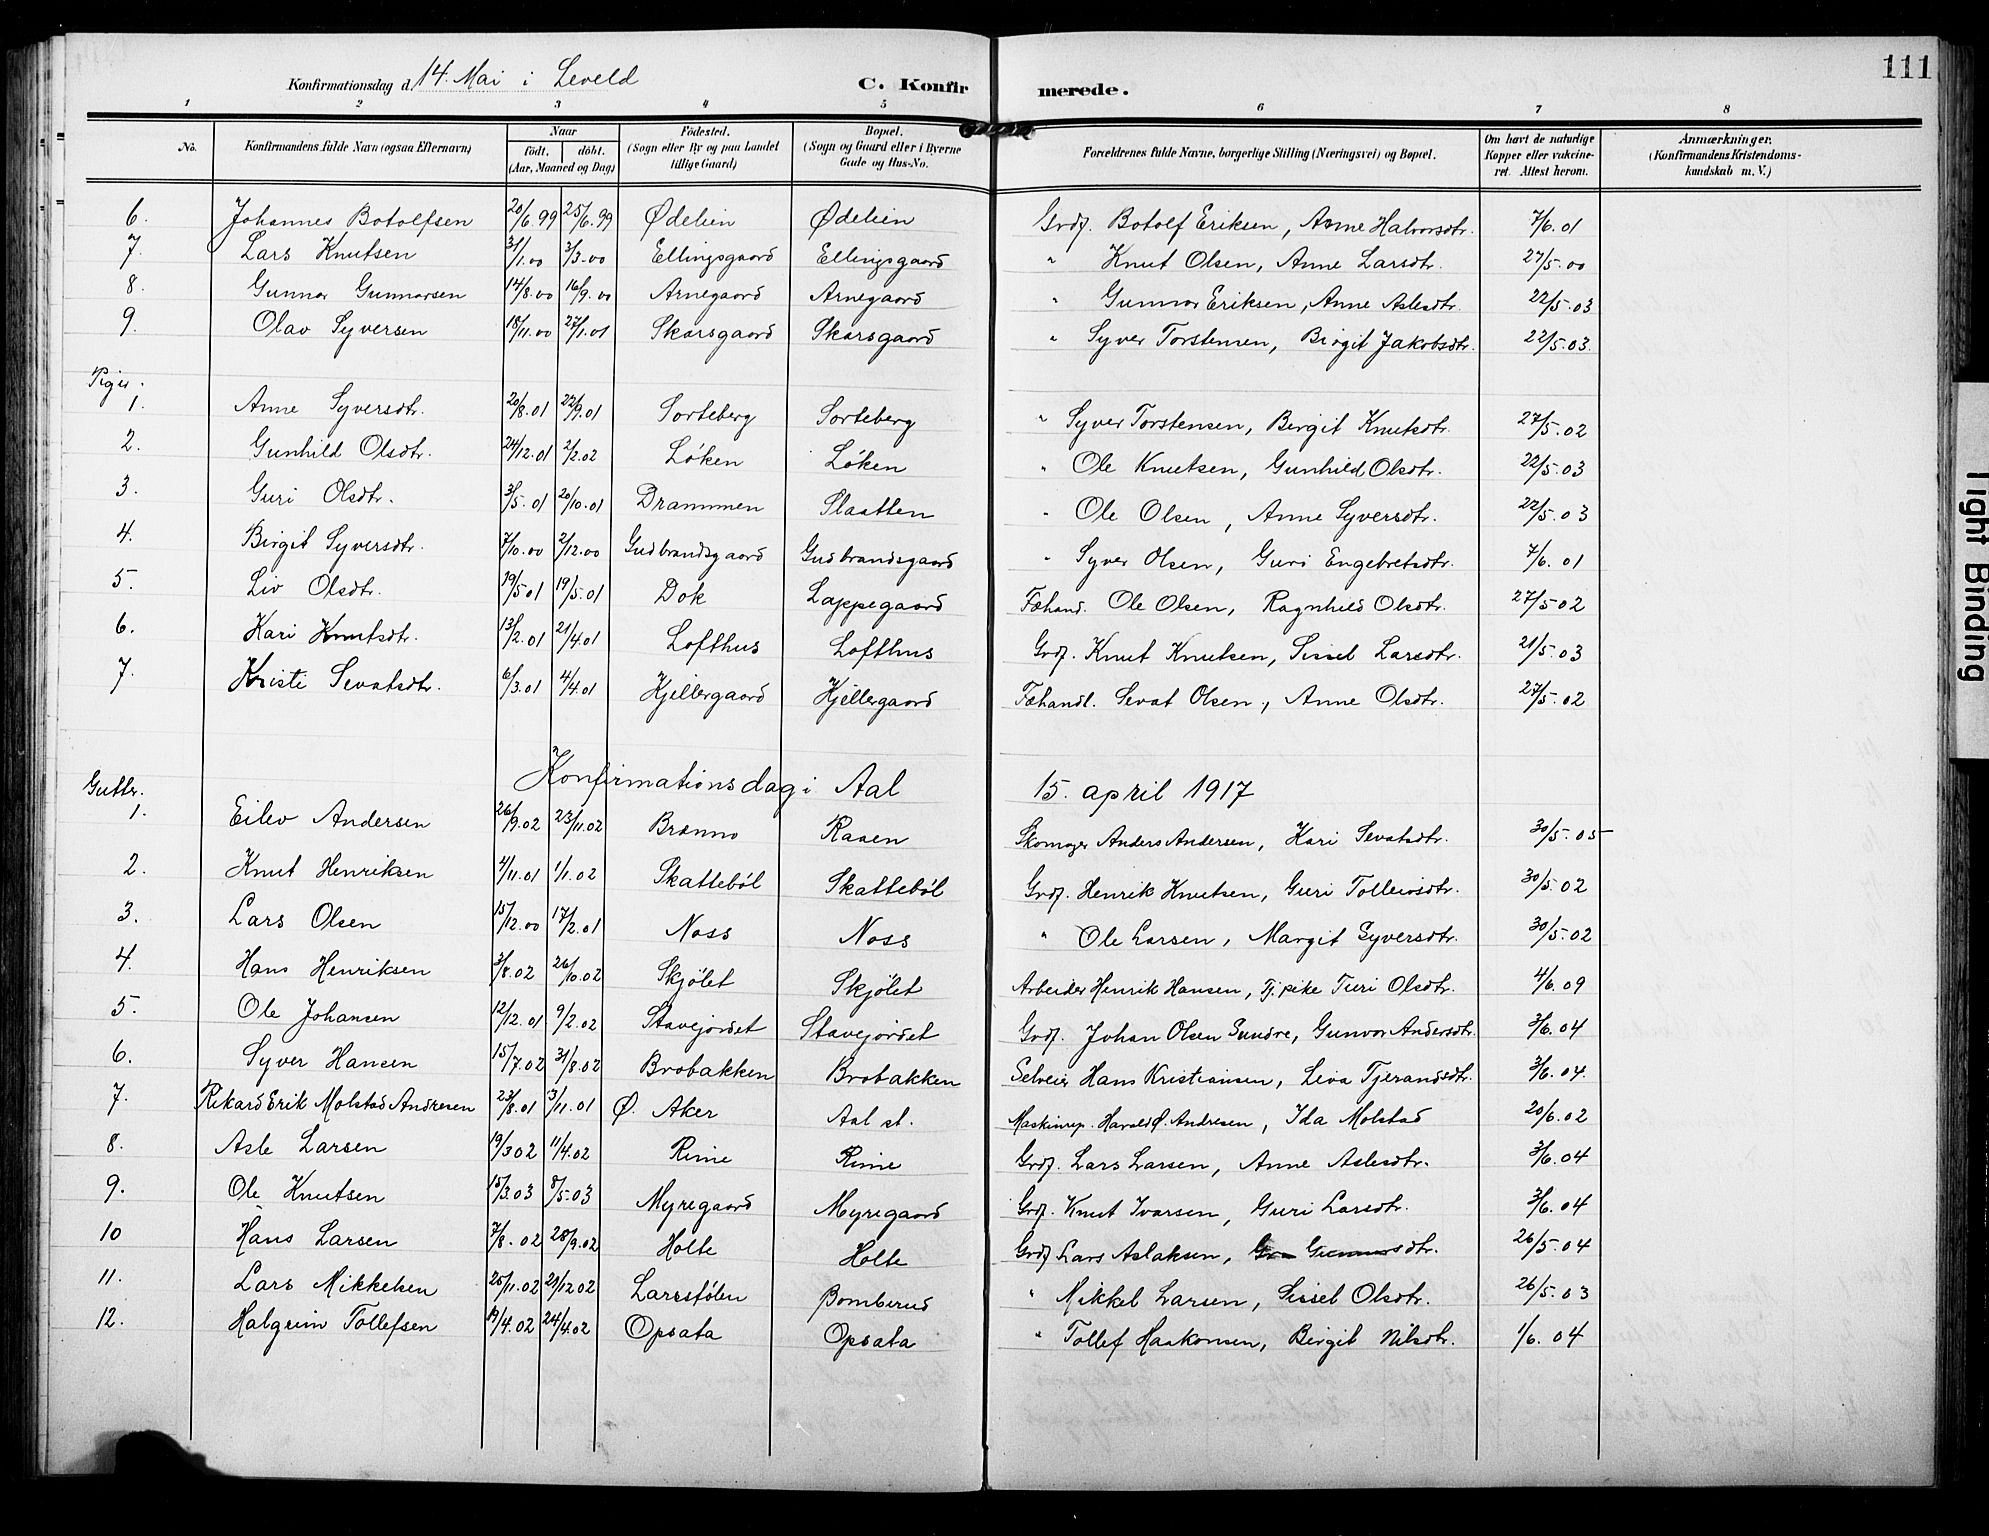 111
Konfirmationsdag d. 14. Mai i Leveld
C. Konfirmerede.
1 2 3 4 5 6 7 8
No. Konfirmandens fulde Navn (ogsaa Efternavn) Naar födt. döbt. (Aar, Maaned og Dag) Födested. (Sogn eller By og paa Landet tillige Gaard) Bopæl. (Sogn og Gaard eller i Byerne Gade og Hus-No. Forældrenes fulde Navne, borgerlige Stilling (Næringsvei) og Bopæl. Om havt de naturlige Kopper eller vakcineret. Attest herom. Anmærkninger. (Konfirmandens Kristendomskundskab m. V.)
6. Johannes Botolfsen 20/6.99 25/6.99 Ødelien Ødelien Grdf. Botolf Eriksen, Anne Halvorsdtr. 7/6.01
7. Lars Knutsen 31/1.00 3/3.00 Ellingsgaard Ellingsgaard " Knut Olsen, Anne Larsdtr. 27/5.00
8. Gunnar Gunnarsen 14/8.00 16/9.00 Arnegaard Arnegaard " Gunnar Eriksen, Anne Aslesdtr. 22/5.03
9. Olav Syversen 18/11.00 27/1.01 Skarsgaard Skarsgaard " Syver Torstensen, Birgit Jakobsdtr. 22/5.03.
Piger.
1. Anne Syversdtr. 20/8.01 22/9.01 Sorteberg Sorteberg " Syver Torstensen, Birgit Knutsdtr. 27/5.02
2. Gunhild Olsdtr. 24/12.01 2/2.02 Løken Løken " Ole Knutsen, Gunhild Olsdtr. 22/5.03
3. Guri Olsdtr. 3/5.01 20/10.01 Drammen Slaatten " Ole Olsen, Anne Syversdtr. 22/5.03
4. Birgit Syversdtr. 7/10.00 2/12.00 Gudbrandsgaard Gudbrandsgaard " Syver Olsen, Guri Engebretsdtr. 7/6.01
5. Liv Olsdtr. 19/5 01 19/5.01 Dok Lappegaard Fæhand. Ole Olsen, Ragnhild Olsdtr. 27/5.02
6. Kari Knutsdtr. 13/2.01 21/4.01 Lofthus Lofthus Grdf. Knut Knutsen, Sissel Larsdtr. 21/5.03
7. Kristi Sevatsdtr. 6/3.01 4/4.01 Kjellergaard Kjellergaard Fæhandl. Sevat Olsen, Anne Olsdtr. 27/5.02
Konfirmationsdag i Aal 15. april 1917
Gutter.
1. Eilev Andersen 26/9.02 23/11.02 Brenno Raaen Skomager Anders Andersen, Kari Sevatsdtr. 30/5.05
2. Knut Henriksen 4/11.01 1/1.02 Skattebøl Skattebøl Grdf. Henrik Knutsen, Guri Tolleivsdtr. 30/5.02
3. Lars Olsen 15/12.00 17/2.01 Noss Noss " Ole Larsen, Margit Syversdtr. 30/5.02
4. Hans Henriksen 3/8.02 26/10.02 Skjølet Skjølet Arbeider Henrik Hansen, Tj.pike Turi Olsdtr. 4/6.09
5. Ole Johansen 12/12.01 9/2.02 Stavejordet Stavejordet Grdf. Johan Olsen Sundre, Gunvor Andersdtr. 3/6.04
6. Syver Hansen 15/7.02 31/8.02 Brobakken Brobakken Selveier Hans Kristiansen, Liva Tjerandsdtr. 3/6.04.
7. Rikard Erik Molstad Andresen 23/8.01 3/11.01 Ø. Aker Aal st. Maskinrep. Harald Ø. Andresen, Ida Molstad 20/6.02
8. Asle Larsen 19/3 02 11/4.02 Rime Rime Grdf. Lars Larsen, Anne Aslesdtr. 3/6.04
9. Ole Knutsen 15/3.03 8/5.03 Myregaard Myregaard Grdf. Knut Ivarsen, Guri Larsdtr. 3/6.04
10 Hans Larsen 7/8.02 28/9.02 Holte Holte Grdf Lars Aslaksen, Gunnarsdtr. 26/5.04
11. Lars Mikkelsen 25/11.02 21/12 02 Larsstølen Bomberud " Mikkel Larsen, Sissel Olsdtr. 26/5.03
12. Halgrim Tollefsen 19/4.02 24/4.02 Opsata Opsata " Tollef Haakonsen, Birgit Nilsdtr. 1/6.04
Tight Binding